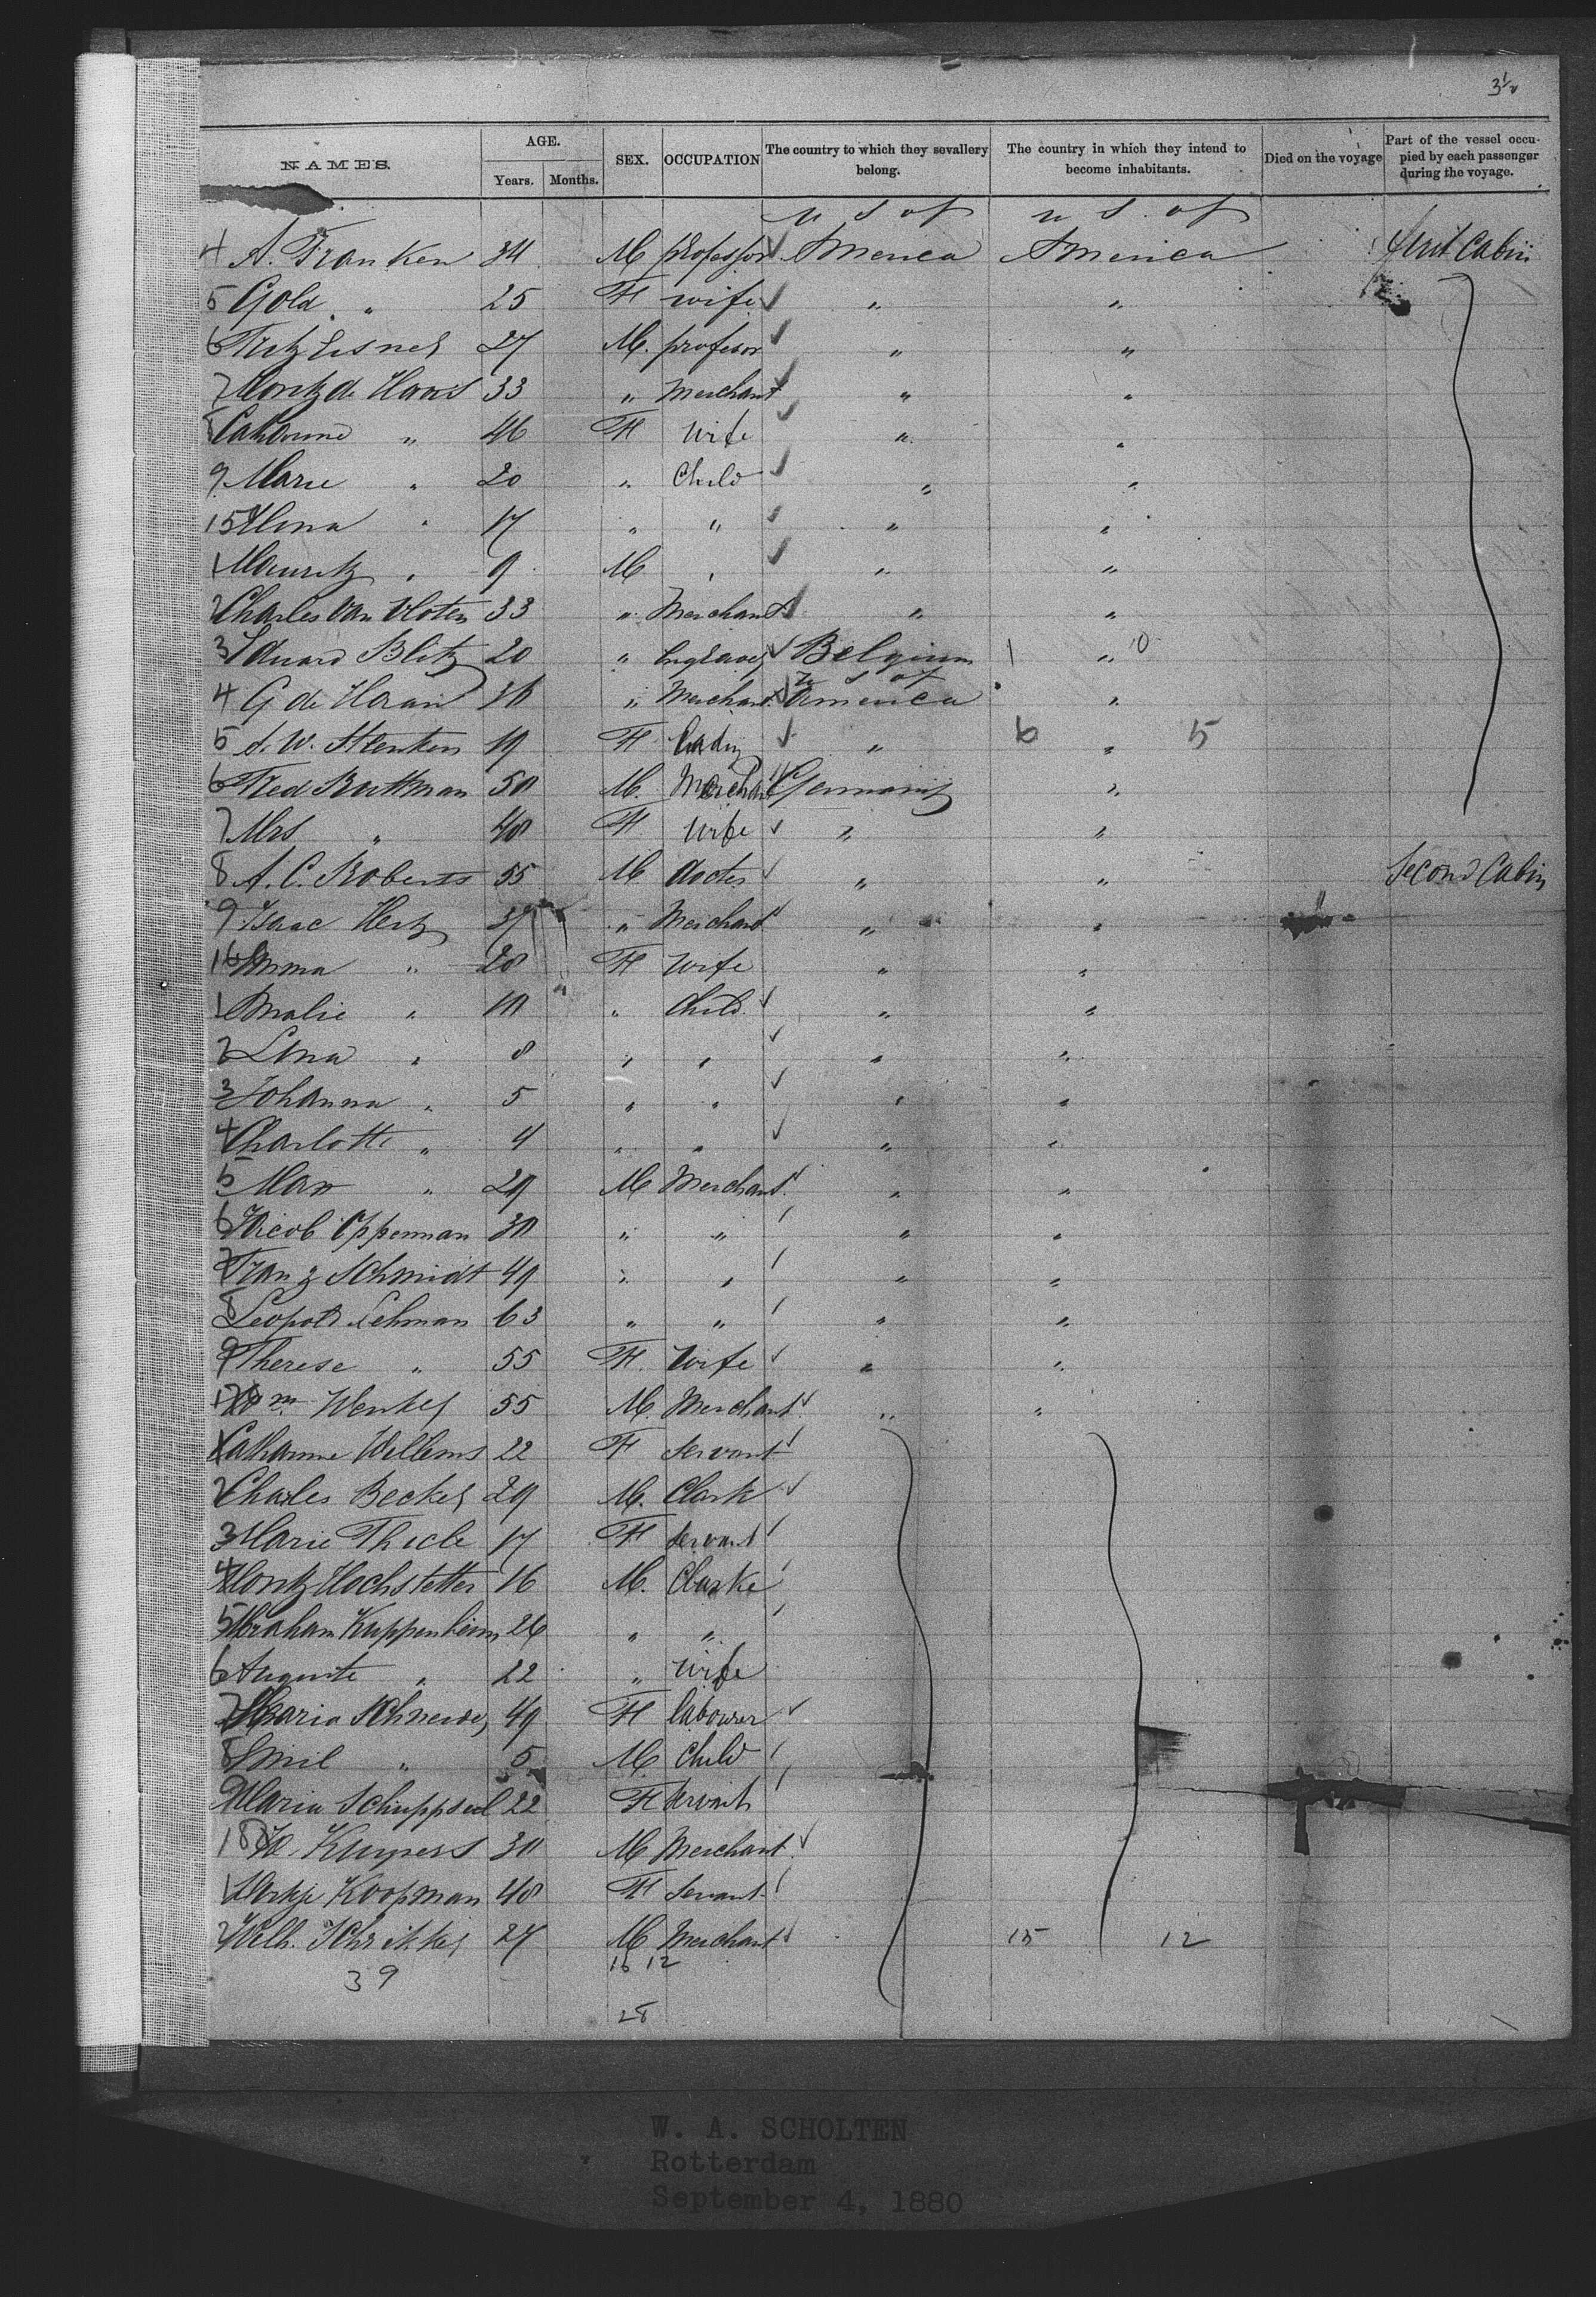 3 1/2
NAMES. AGE. Years. Months. SEX. OCCUPATION The country to which they sevallery belong. The country in which they intend to become inhabitants. Died on the voyage Part of the vessel occupied by each passenger during the voyage.
U S of U S. of
4 A. Franken 34 M professor America America First Cabin
5 Gold " 25 F wife " "
6 Fritz 27 M. profesor " "
7 Moritz de Haas 33 " Merchant " "
8 " 46 F Wife " "
9 Marie " 20 " Child " "
15 " 17 " " " "
1 Mauritz " 9 M " " "
2 Charles van Vloten 33 " Merchant " "
3 Eduard Blitz 20 " Engraver Belgium 1 " 0
U S of
4 G de 30 " Merchant America "
5 19 F Lady " 6 " 5
6 Fred 50 M. Merchant Germany "
7 Mrs " 40 F Wife " "
8 A. C. Roberts 55 M docter " " Second Cabin
9 Isaac Hertz 37 " Merchant " "
16 Emma " 28 F Wife " "
1 " 10 " Child " "
2 Lina " 8 " " " "
3 Johanna " 5 " " " "
4 Charlotte " 4 " " " "
5 Max " 29 M Merchant " "
6 Jacob Opperman 30 " " " "
7 Franz Schmidt 49 " " " "
8 Leopold Lehman 63 " " " "
9 Therese " 55 F. Wife " "
17 Wm 55 M. Merchant " "
1 Catharine Willems 22 F Servant
2 Charles Becker 29 M. Clark
3 Marie Thiele 17 F Servant
4 Moritz Hochstetter 16 M. Clarke
5 Abraham Kuppenheim 26 " "
6 Auguste " 22 " Wife
7 Maria Schneider 49 F labourer
8 Emil " 5 M Child
9 Maria 22 F Servant
18 W. Kuypers 30 M Merchant
1 Koopman 48 F Servant
2 Wilh. 27 M Merchant 15 12
39 16 12
28
W. A. SCHOLTEN
Rotterdam
September 4, 1880